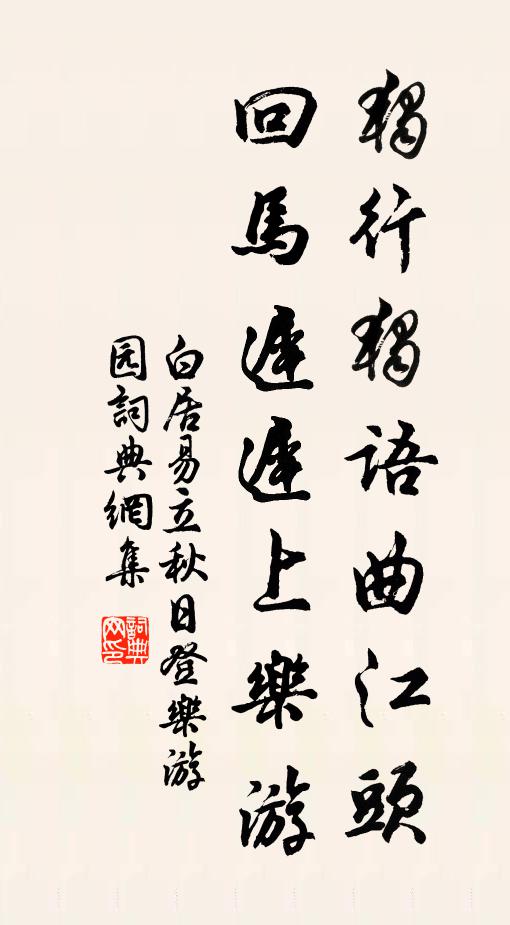 獨行獨語曲江頭
回馬遲遲上樂游
白居易立秋日登樂游
园詞典網集
詞典
网印